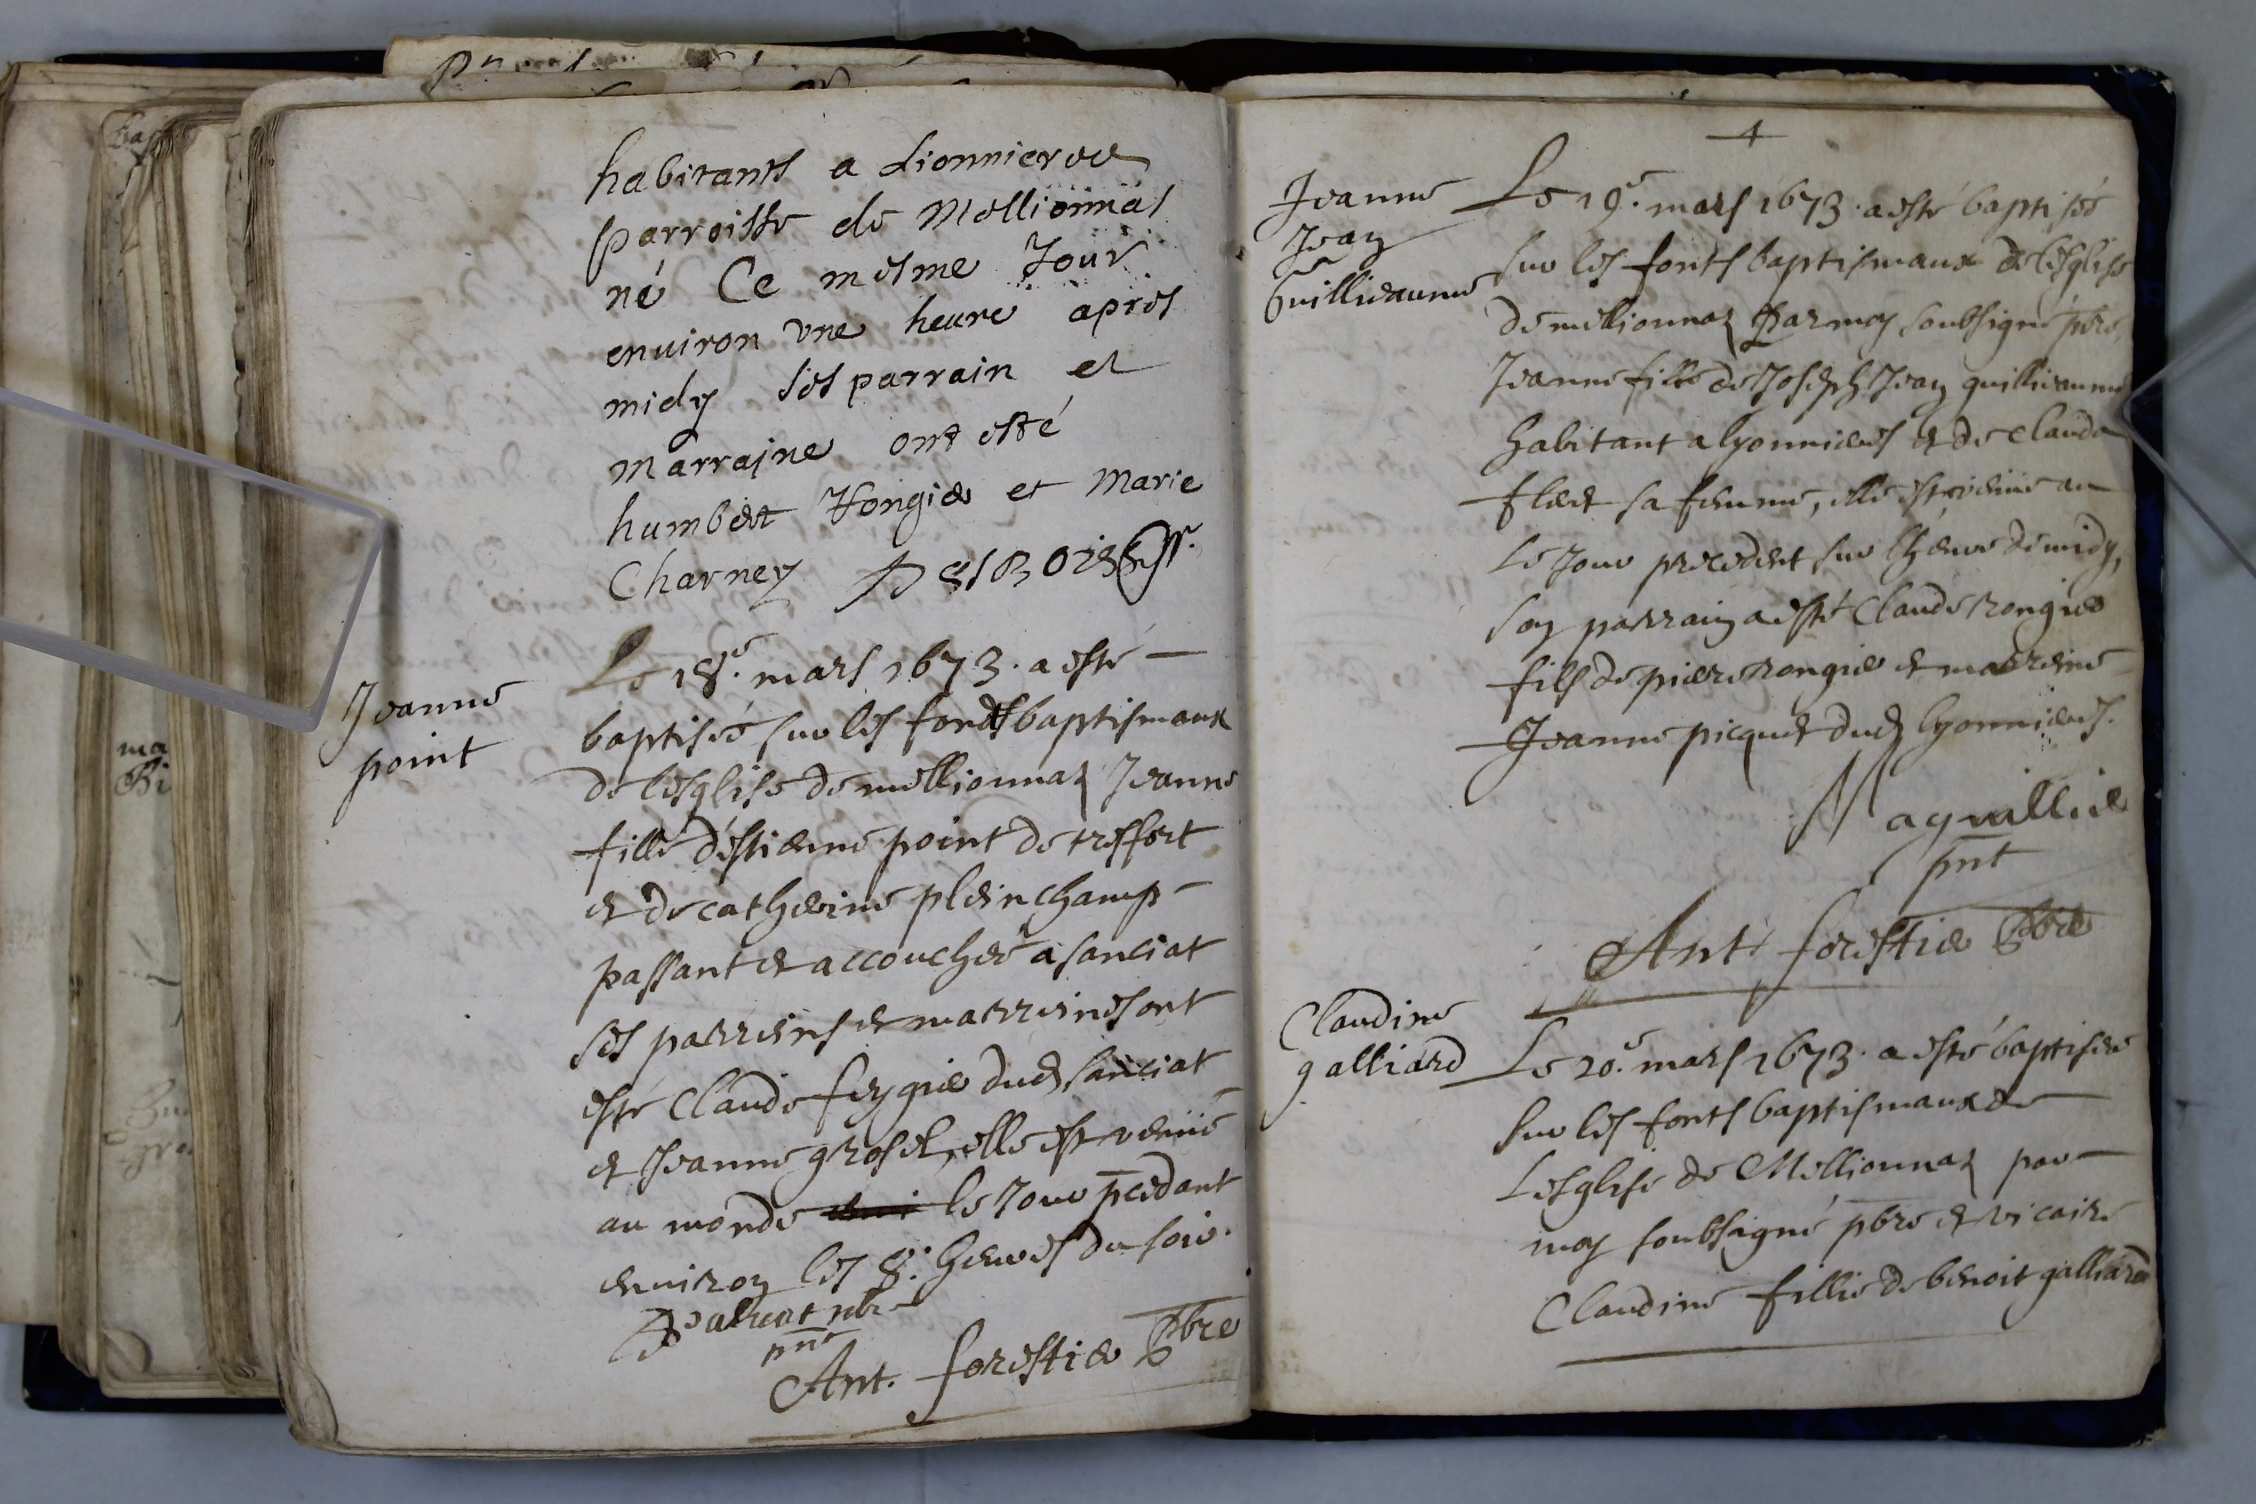 habitants a Lionnieres
parroisse de Mellionnas
né Ce mesme Jour
environ vne heure apres
midy ses parrain et
marrajne ont esté
humbert Rongier et Marie
Charney DESBOIS
Jeanne
point
Le 18e. mars 1673. a esté
baptisée sur les fonds baptismaux
de lesglise de mellionnaz Jeanne
fille d'estienne point de treffort
et de catherine pleinchamp
passant et accouchée a sanciat
ses parreins et marreines ont
esté Claude feygier dud sanciat
et Jeanne grosel, elle est venüe
au monde le Jour pcedant
environ les 8. heures du soir.
pnt
Ant. forestier Pbre
4
Jeanne
Jean
Guillieaume
Le 19e. mars 1673. a esté baptisée
sur les fonts baptismaux de lesglise
de mellionnaz par moy soubsigné pbre,
Jeanne fille de Joseph Jean guillieaume
habitant a lyonnieres et de Clauda
sa femme, elle est venüe au
le Jour precedent sur lheure de midy,
son parrain a esté Claude rongier
fils de pierre rongier et marreine
Jeanne picquet dud lyonnieres.
Maguillier
pnt
Ant. forestier Pbre
Claudine
galliard
Le 20e. mars 1673. a esté baptisée
sur les fonts baptismaux de
Lesglise de Mellionnaz par
moy soubsigné pbre et vicaire
Claudine fillie de benoit galliard